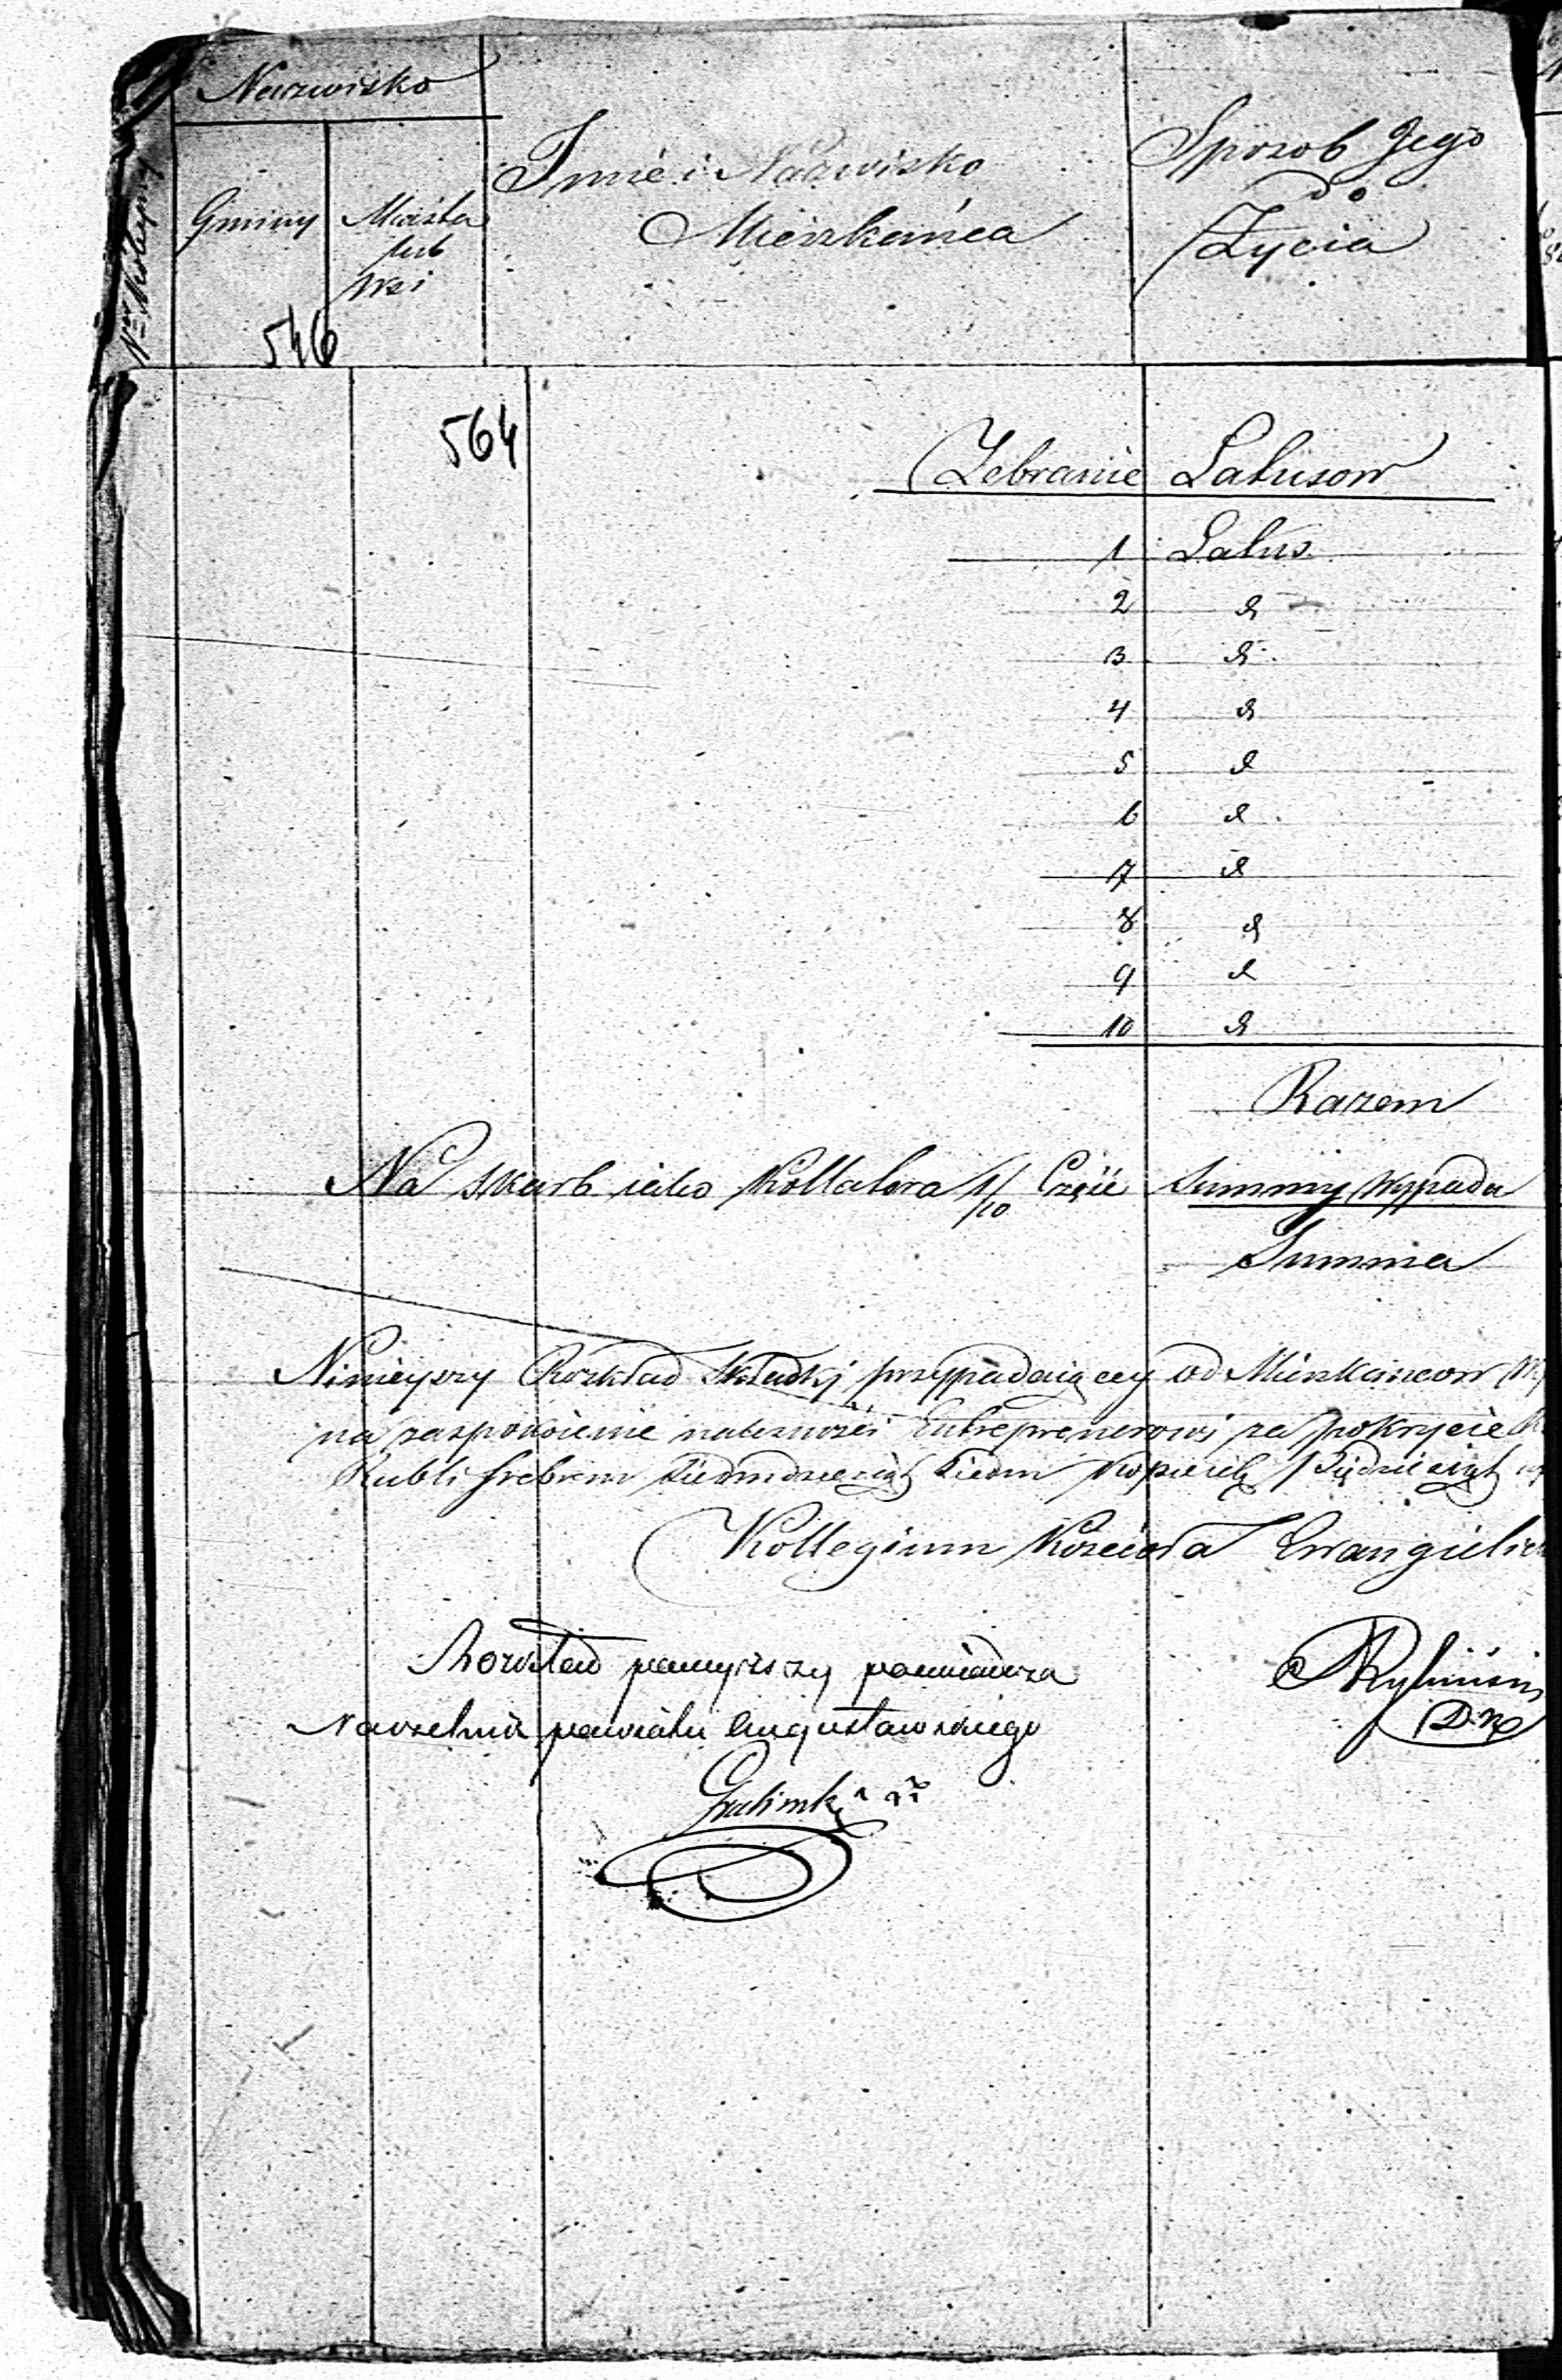 Nrer Kolejny
Nazwisko
Gminy
Miasta
lub
Wsi
Imie i Nazwisko
Mieszkańca
Sposob Jego
do
Życia
546
564
Zebranie Latusow
1 Latus
2 d
3 d
4 d
5 d
6 d
7 d
8 d
9 d
10 d
Razem
Na Skarb iako Kollatora 1/10 Część Summy wypada
Summa
Ninieyszy Rozkład Składki przypadaiący od Mieszkancow
na zaspokoienie należności Entreprenerowi za pokrycie
Rubli srebrem siedmdziesiąt siedm kopieiek
Kollegium Kościoła Ewangielic
Rozkład powyższy poswiadcza
Naczelnik powiatu Augustowskiego